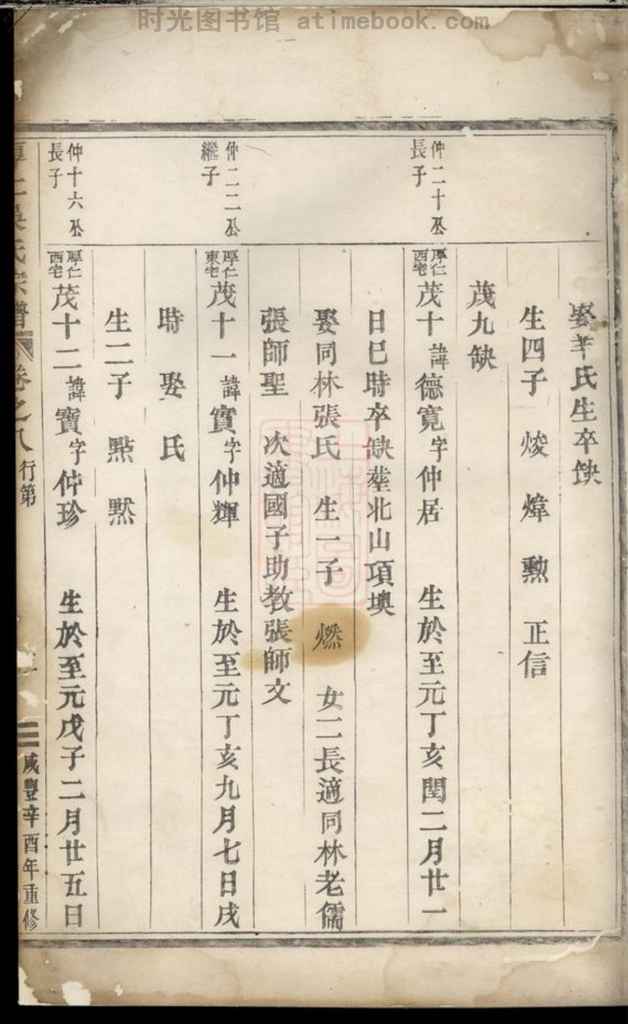 时光图书馆 atimebook.com
娶羊氏生卒缺
生四子 焌 煒 勲 正信
茂九缺
仲二十公
長子
厚仁
西宅
茂十 諱德寬字仲居 生於至元丁亥閏二月廿一
日巳時卒缺塟北山項墺
娶同林張氏 生一子 燃 女二長適同林老儒
張師聖 次適國子助教張師文
仲二二公
繼子
厚仁
東宅
茂十一諱寳字仲輝 生於至元丁亥九月七日戌
時 娶 氏
生二子 點 默
仲十六公
長子
厚仁
西宅
茂十二諱寶字仲珍 生於至元戊子二月廿五日
吳氏宗譜 卷之八 行第
咸豐辛酉年重修